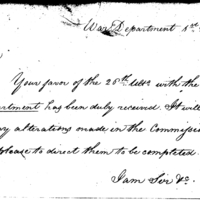 War Department
Your favor of the 28th Ulto. with the
artment has been duly received. It will
alterations made in the Commissi
please to direct them to be completed.
I am Sir &c.